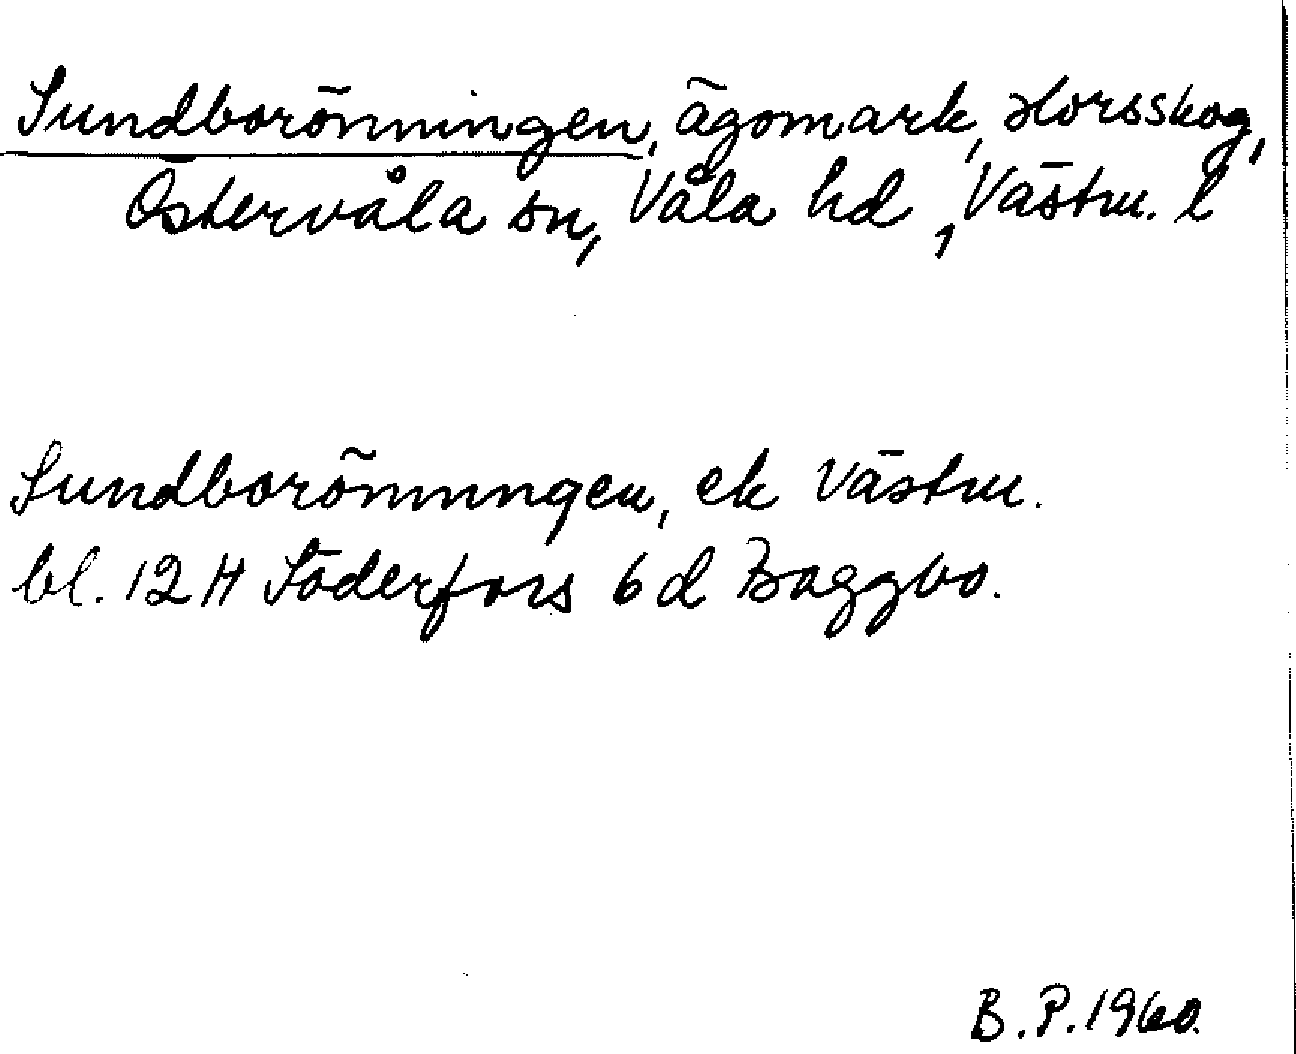 Sundborönningen, ägomark, Horsskog,
Östervåla sn, Våla hd, Västm. l
Sundborönningen, ek Västm.
bl. 12 H Söderfors 6 d Baggbo.
B. P. 1960.